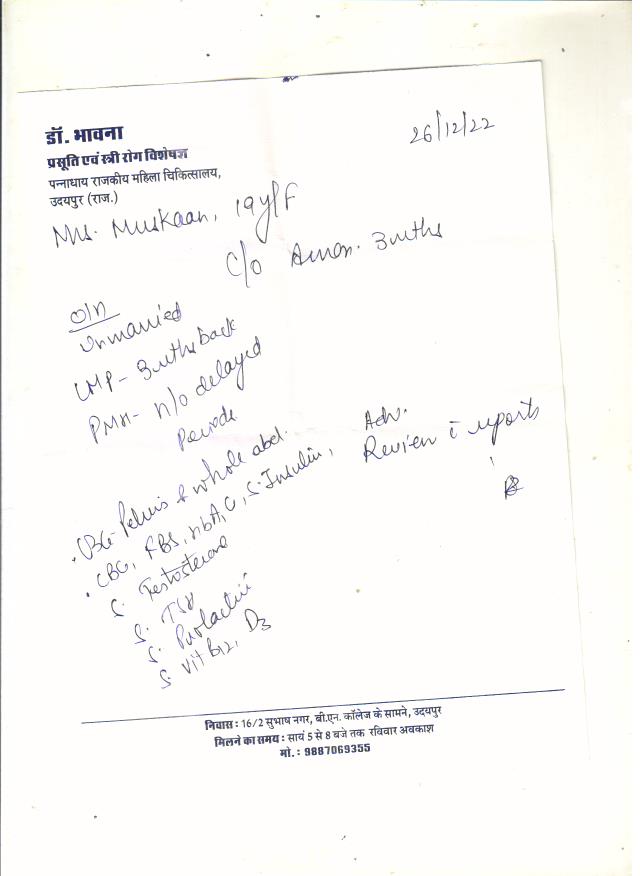 डॉ. भावना
प्रसूति एवं स्त्री रोग विशेषज्ञ
पन्नाधाय राजकीय महिला चिकित्सालय,
उदयपुर (राज.)
26/12/22
Ms. Muskaan, 19y/F
C/o Amen. 3mths
O/H
Unmarried
LMP- 3mths back
PMH- H/o delayed
Periods
. USG- Pelvis & whole abd.
. CBC, FBS, HbA1C, S. Insulin,
S. Testosterone
S. TSH
S. Prolactin
S. Vit B12, D3
Adv.
Review c reports
निवास : 16/2 सुभाष नगर, बी.एन. कॉलेज के सामने, उदयपुर
मिलने का समय : सायं 5 से 8 बजे तक रविवार अवकाश
मो. : 9887069355